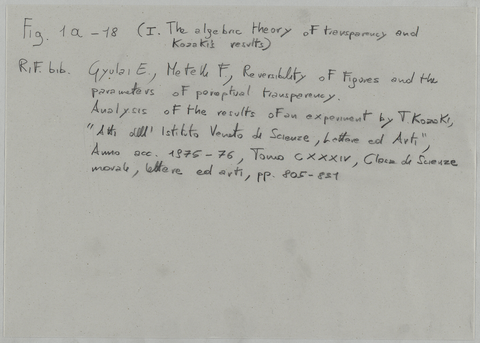 Fig. 1a - 18 (I. The algebric theory of transparency and
Kozaki's results)
Rif. bib. Gyulai E, Metelli F, Reversibility of Figures and the
parameters of perceptual transparency.
Analysis of the results of an experiment by T. Kozaki,
"Atti dell' Istituto Veneto di Scienze, Lettere ed Arti",
Anno acc. 1975-76, Tomo CXXXIV, Classe di Scienze
morale, lettere ed arti, pp. 805-831